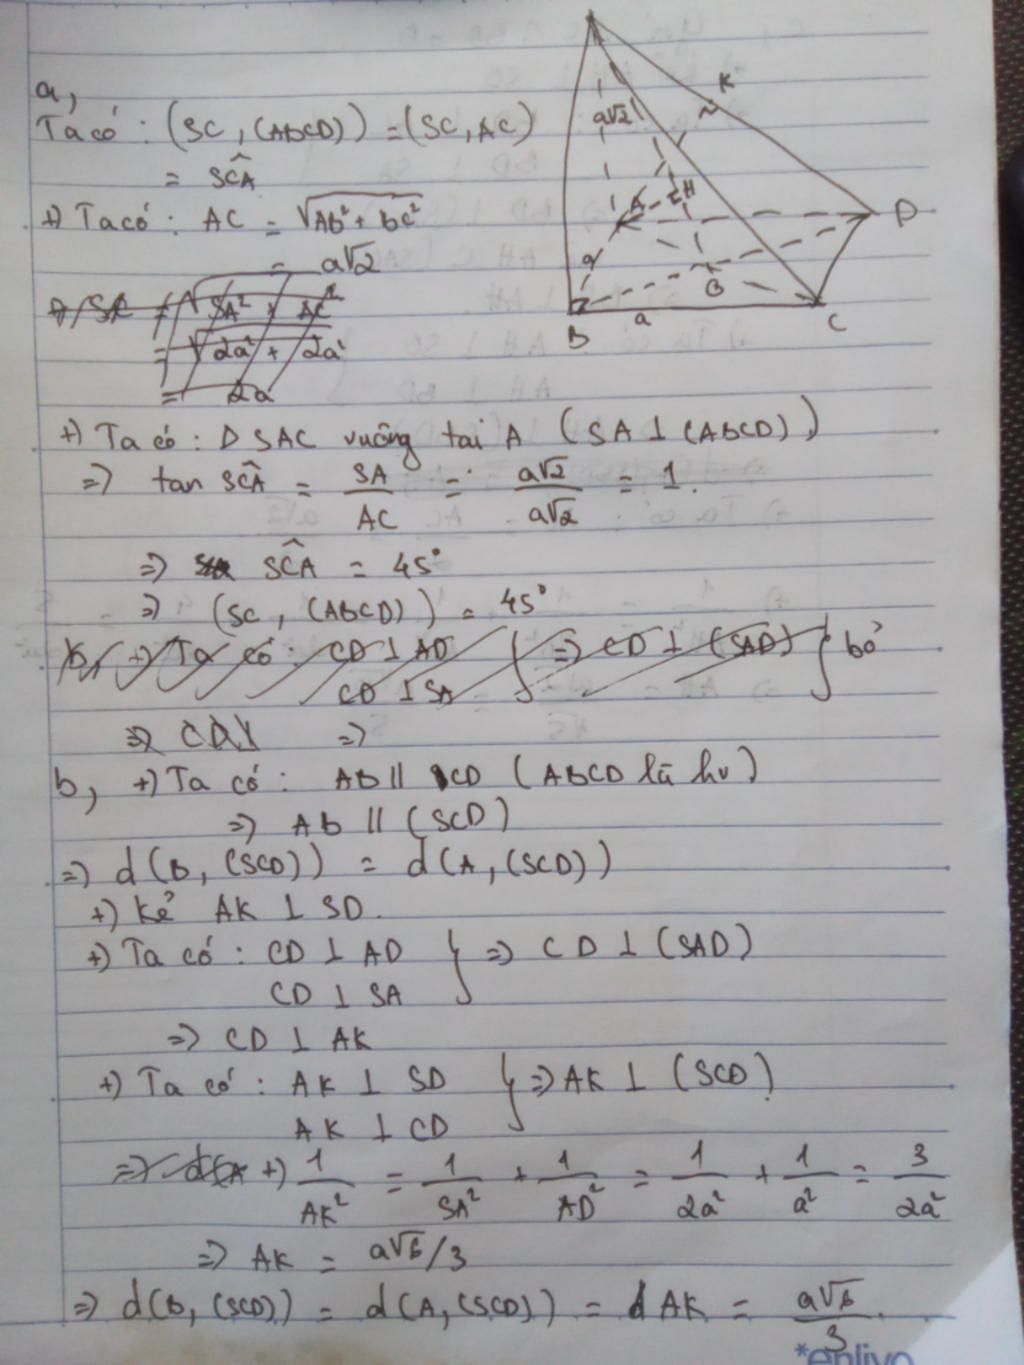 a,
Ta có : (SC, (ABCD)) = (SC, AC)
= SĈA
+) Ta có : AC = √(Ab² + bc²)
= a√2
= √(2a² + 2a²)
= 2a
+) Ta có : Δ SAC vuông tại A (SA ⊥ (ABCD))
=> tan SĈA = SA/AC = a√2/a√2 = 1.
=> SĈA = 45°
=> (SC, (ABCD)) = 45°
b, +) Ta có : CD ⊥ AD } => CD ⊥ (SAD) } bỏ
CD ⊥ SA
=> CD ⊥ =>
b, +) Ta có : AB // CD (ABCD là hv)
=> Ab // (SCD)
=> d(B, (SCD)) = d(A, (SCD))
+) Kẻ AK ⊥ SD.
+) Ta có : CD ⊥ AD } => CD ⊥ (SAD)
CD ⊥ SA
=> CD ⊥ AK
+) Ta có : AK ⊥ SD } => AK ⊥ (SCD)
AK ⊥ CD
=> d(A +) 1/AK² = 1/SA² + 1/AD² = 1/2a² + 1/a² = 3/2a²
=> AK = a√6/3
=> d(B, (SCD)) = d(A, (SCD)) = d AK = a√6/3.
K
a√2
A
H
D
a
O
B
a
C
*enlivo